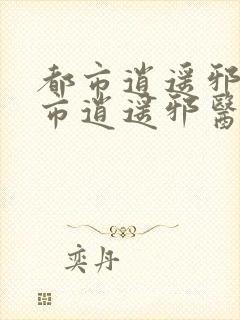 都市逍遥邪
市逍遥邪醫
奕丹